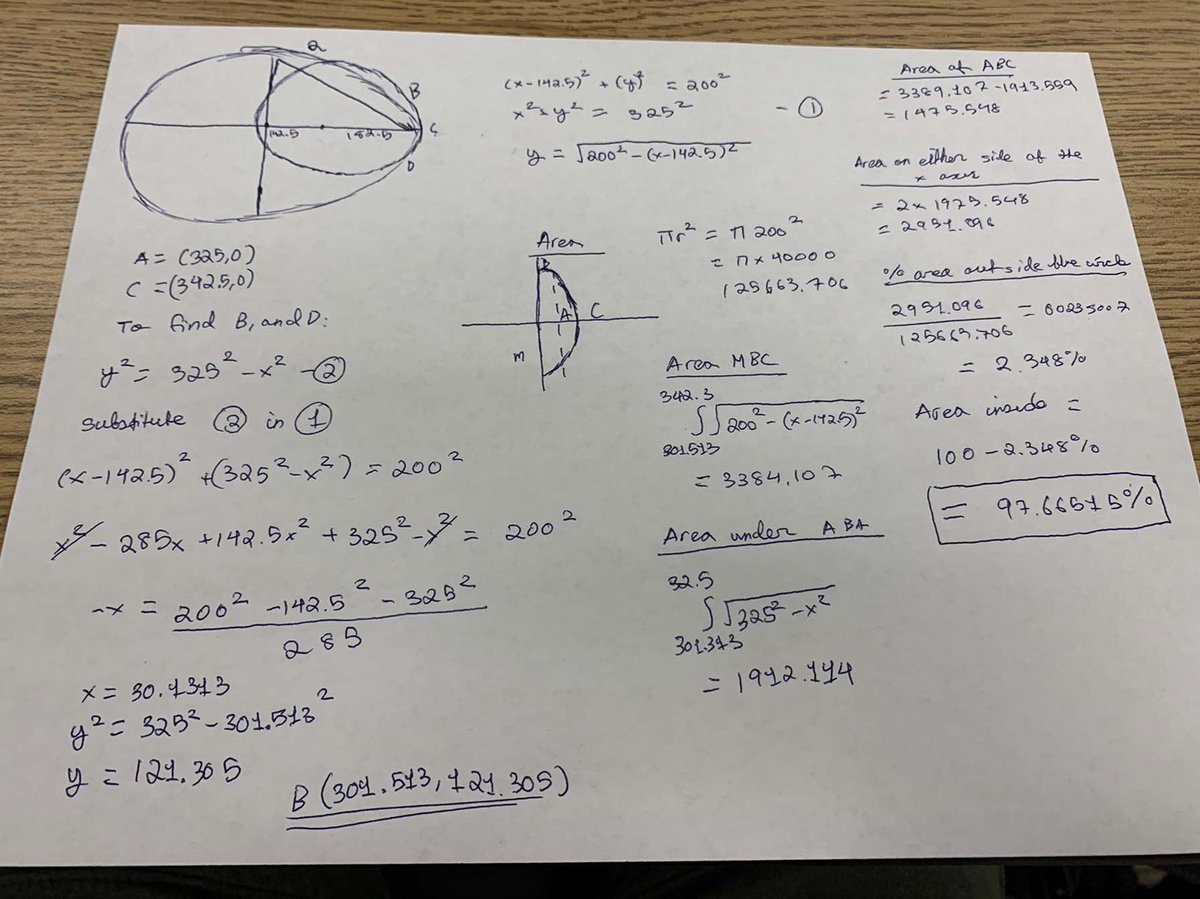 a
B
C
D
142.5
182.5
A = (325,0)
C = (342.5,0)
To find B, and D:
y² = 325² - x² - ②
Substitute ② in ①
(x-142.5)² + (325² - x²) = 200²
x² - 285x + 142.5x² + 325² - x² = 200²
-x = 200² - 142.5² - 325²
285
x = 30.1313
y² = 325² - 301.513²
y = 121.305
B (301.513, 121.305)
(x-142.5)² + (y)² = 200²
x² + y² = 325² - ①
y = √200² - (x-142.5)²
Area
B
A
C
m
πr² = π 200²
= π × 40000
125663.706
Area MBC
342.3
∫√200² - (x-142.5)²
301513
= 3384.107
Area under ABA
32.5
∫√325² - x²
301.313
= 1912.114
Area of ABC
= 3389.107 - 1913.559
= 1475.548
Area on either side of the
x axis
= 2 x 1975.548
= 2951.096
% area outside the circle
2951.096
125663.706
= 00235007
= 2.348%
Area inside =
100 - 2.348%
= 97.66515%